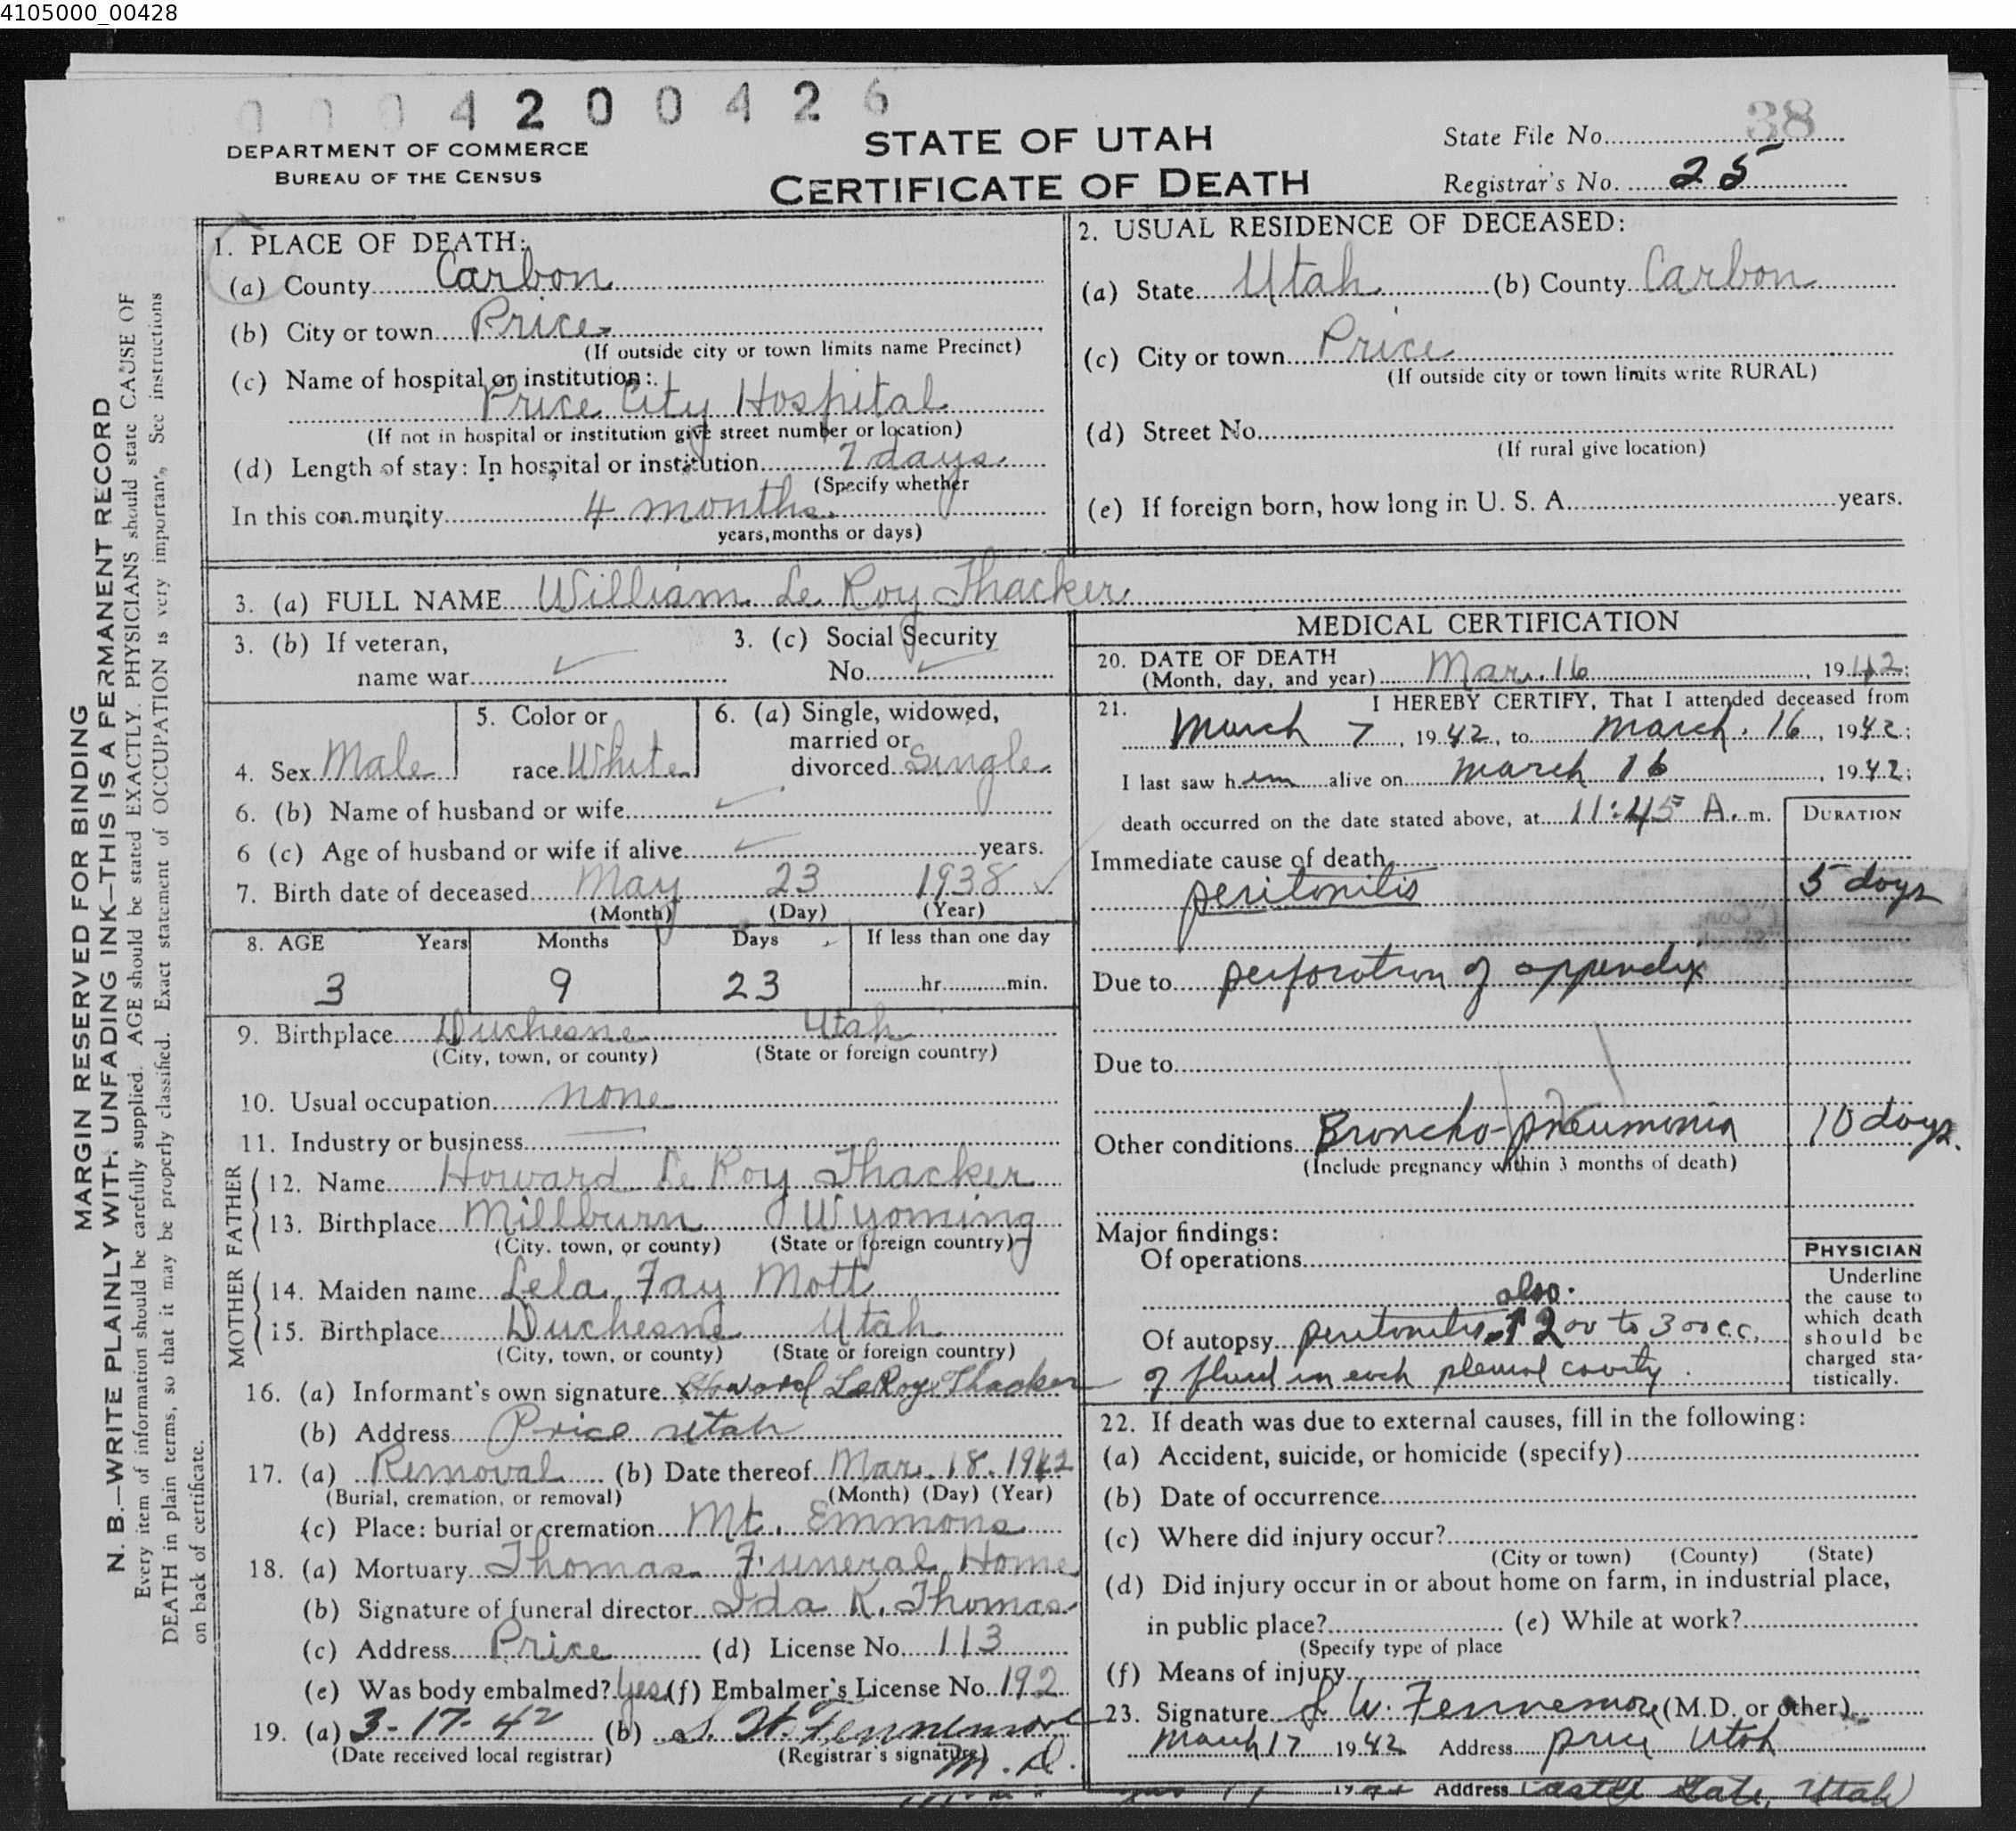 4105000_00428
0004200426
38
DEPARTMENT OF COMMERCE
BUREAU OF THE CENSUS
STATE OF UTAH
CERTIFICATE OF DEATH
State File No.
Registrar's No. 25
MARGIN RESERVED FOR BINDING
N. B.—WRITE PLAINLY WITH UNFADING INK—THIS IS A PERMANENT RECORD
Every item of information should be carefully supplied. AGE should be stated EXACTLY. PHYSICIANS should state CAUSE OF
DEATH in plain terms, so that it may be properly classified. Exact statement of OCCUPATION is very important. See instructions
on back of certificate.
1. PLACE OF DEATH:
(a) County Carbon
(b) City or town Price
(If outside city or town limits name Precinct)
(c) Name of hospital or institution:
Price City Hospital
(If not in hospital or institution give street number or location)
(d) Length of stay: In hospital or institution 7 days
(Specify whether
In this community 4 months
years, months or days)
2. USUAL RESIDENCE OF DECEASED:
(a) State Utah (b) County Carbon
(c) City or town Price
(If outside city or town limits write RURAL)
(d) Street No.
(If rural give location)
(e) If foreign born, how long in U. S. A. years.
3. (a) FULL NAME William Le Roy Thacker
3. (b) If veteran, 3. (c) Social Security
name war No.
4. Sex Male
5. Color or
race White
6. (a) Single, widowed,
married or
divorced Single
6. (b) Name of husband or wife
6 (c) Age of husband or wife if alive years.
7. Birth date of deceased May 23 1938
(Month) (Day) (Year)
8. AGE Years Months Days If less than one day
3 9 23 hr. min.
9. Birthplace Duchesne Utah
(City, town, or county) (State or foreign country)
10. Usual occupation none
11. Industry or business
FATHER
12. Name Howard Le Roy Thacker
13. Birthplace Millburn Wyoming
(City. town, or county) (State or foreign country)
MOTHER
14. Maiden name Lela Fay Mott
15. Birthplace Duchesne Utah
(City, town, or county) (State or foreign country)
16. (a) Informant's own signature Howard LeRoy Thacker
(b) Address Price Utah
17. (a) Removal (b) Date thereof Mar. 18. 1942
(Burial, cremation, or removal) (Month) (Day) (Year)
(c) Place: burial or cremation Mt. Emmons
18. (a) Mortuary Thomas Funeral Home
(b) Signature of funeral director Ida K. Thomas
(c) Address Price (d) License No. 113
(e) Was body embalmed? Yes (f) Embalmer's License No. 192
19. (a) 3-17-42 (b) S. W. Fennemore
(Date received local registrar) (Registrar's signature) M. D.
MEDICAL CERTIFICATION
20. DATE OF DEATH
(Month, day, and year) Mar. 16, 1942;
21. I HEREBY CERTIFY, That I attended deceased from
March 7, 1942, to March 16, 1942;
I last saw him alive on March 16, 1942;
death occurred on the date stated above, at 11:45 A. m.
DURATION
Immediate cause of death
peritonitis 5 days
Due to perforation of appendix
Due to
Other conditions Broncho-pneumonia 10 days.
(Include pregnancy within 3 months of death)
Major findings:
Of operations
also.
Of autopsy peritonitis 200 to 300cc.
of fluid in each pleural cavity.
PHYSICIAN
Underline
the cause to
which death
should be
charged sta-
tistically.
22. If death was due to external causes, fill in the following:
(a) Accident, suicide, or homicide (specify)
(b) Date of occurrence
(c) Where did injury occur?
(City or town) (County) (State)
(d) Did injury occur in or about home on farm, in industrial place,
in public place? (e) While at work?
(Specify type of place
(f) Means of injury
23. Signature W. Fennemore (M.D. or other)
March 17 1942 Address Price Utah
Address Castle Gate, Utah